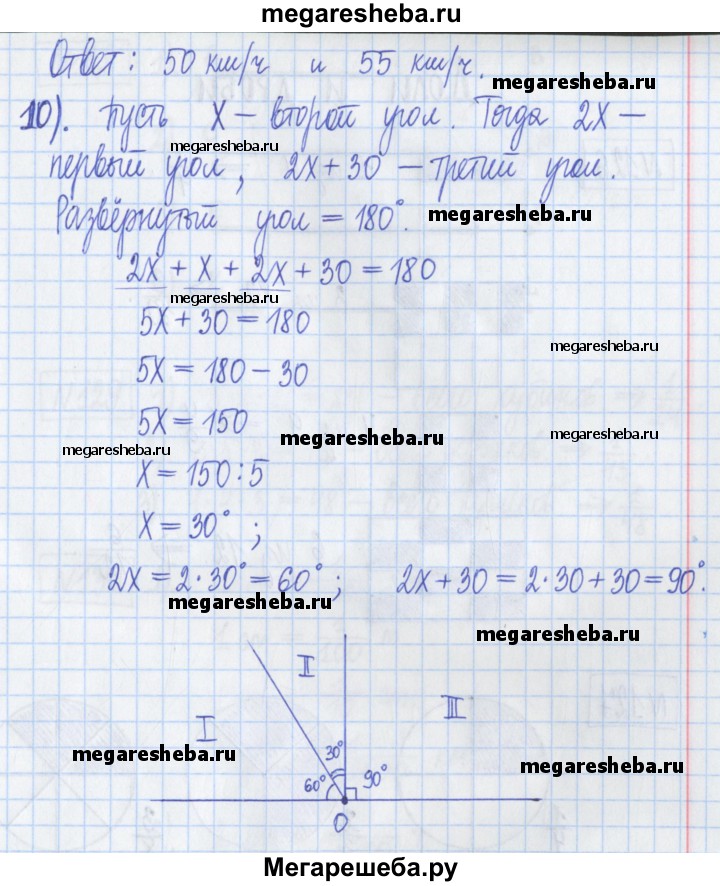 megaresheba.ru
Ответ: 50 км/ч и 55 км/ч.
megaresheba.ru
10). Пусть X – второй угол. Тогда 2X –
megaresheba.ru
первый угол, 2X + 30 – третий угол.
Развёрнутый угол = 180°.
megaresheba.ru
2X + X + 2X + 30 = 180
megaresheba.ru
5X + 30 = 180
megaresheba.ru
5X = 180 – 30
5X = 150
megaresheba.ru
megaresheba.ru
megaresheba.ru
X = 150 : 5
X = 30° ;
2X = 2 · 30° = 60° ; 2X + 30 = 2 · 30 + 30 = 90°.
megaresheba.ru
megaresheba.ru
II
I
III
megaresheba.ru
30°
megaresheba.ru
60°
90°
O
Мегарешеба.ру